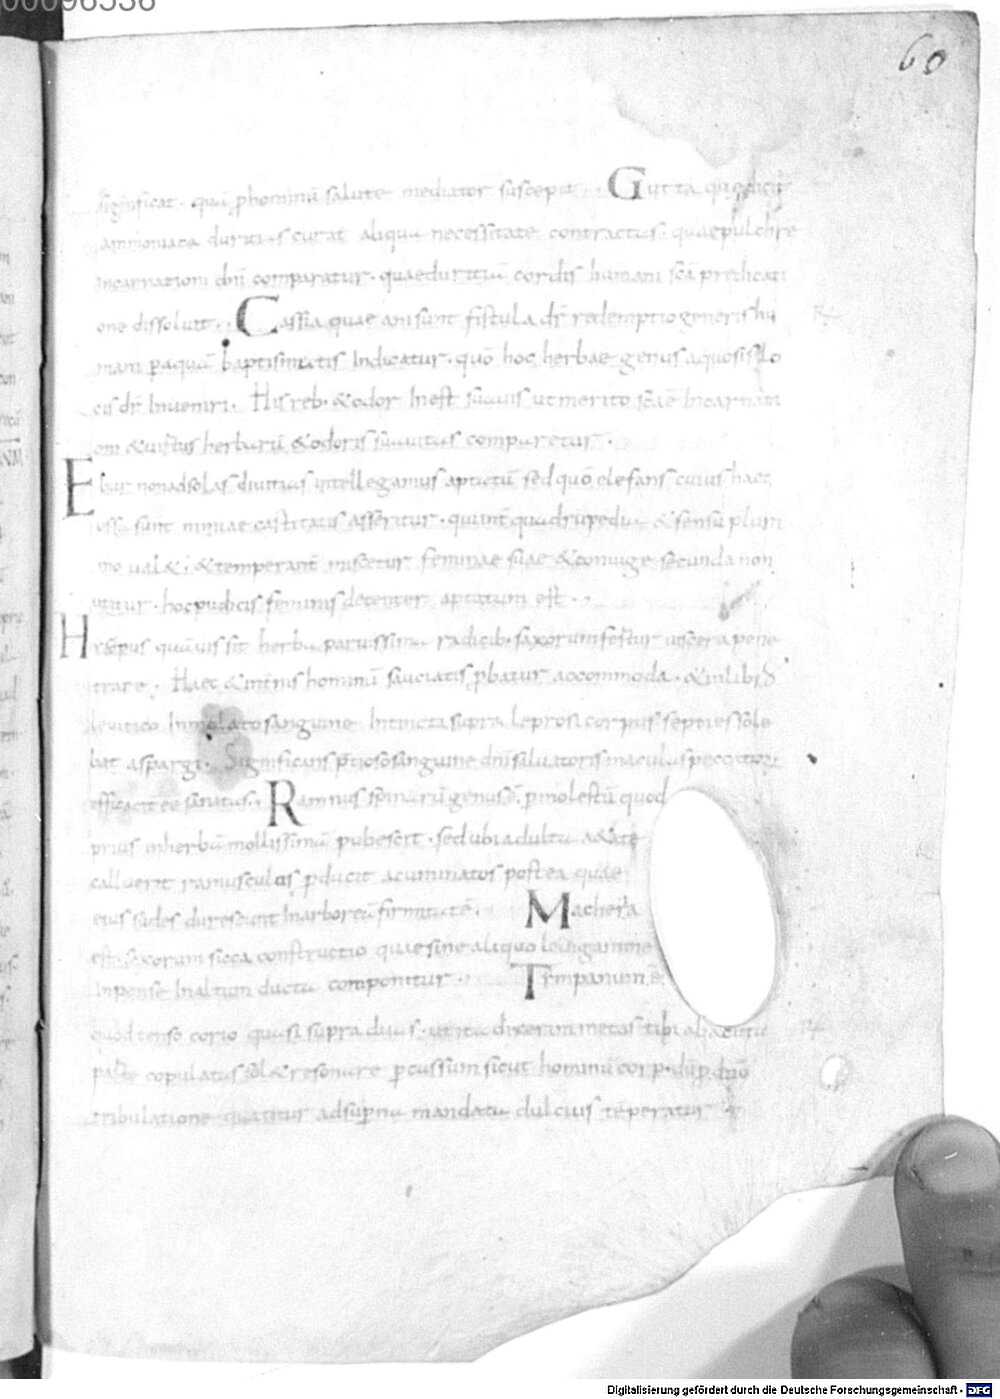 00096536
60
significat · quā phominū salute mediator suscepit · Gutta quędicit
ammoniaca duritias curat aliqua necessitate contractas · quaepulchre
incarnationi dnī comparatur · quaeduritiā cordis humani scā predicati
one dissoluit · Cassia quae ani sunt fistula dr̄ redemptio generis hu
mani paquā baptismatis Indicatur · quō hoc herbae genus aquosis lo
cis dr̄ Inueniri · His reb · & odor Inest suauis ut merito scāe Incarnati
oni & uirtus herbarū & odoris suauitas comparetur ·
Ebur non ad solas diuitias intellegamus aptatū sed quō elefans cuius haec
ossa sunt nimiae castitatis asseritur · qui int̄ quadrupedia & sensu pluri
mo ual& · & temperant̄ miscetur feminae suae & coniuge secunda non
utitur · hoc pudicis feminis decenter aptatum est ·
Hysopus quāuis sit herba paruissima radicib · saxorum fertur uiscera pene
trare · Haec & int̄nis hominū sauciatis pbatur accommoda · & in lib
leuitico Immolato sanguine Intincta supra leprosi corpus septies sole
bat aspargi · Significans p̄tioso sanguine dnī saluatoris maculas peccatorū
efficacit̄ ee sanatas · Ramnus spinarū genus ē · pmolestū quod
prius inherbā mollissimā pubescit · sed ubi adulta a&ate
calluerit ramusculos pducit acuminatos postea quae
eius sudes durescunt In arboreā firmitatē · Macheria
est · saxorum sicca constructio quae sine aliquo leuigamine
Inpense In altum ductu componitur · Tympanum ē
quod tenso corio quasi supra duas · ut ita dixerim metas sibi ab acuta
parte copulatas sol& resonare pcussum sicut hominū corp · dum p dnō
tribulatione quatitur ad sup̄na mandata dulcius tēperatur
Digitalisierung gefördert durch die Deutsche Forschungsgemeinschaft - DFG